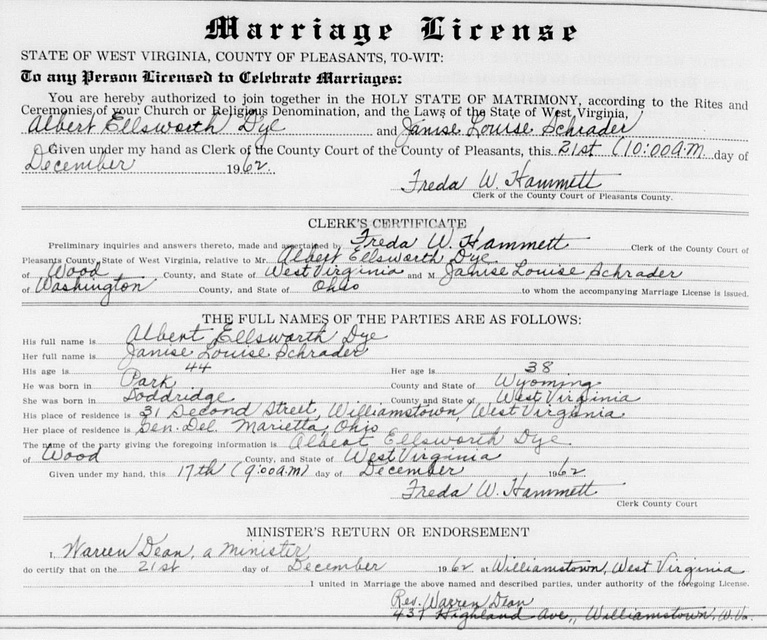 Marriage License
STATE OF WEST VIRGINIA, COUNTY OF PLEASANTS, TO-WIT:
To any Person Licensed to Celebrate Marriages:
You are hereby authorized to join together in the HOLY STATE OF MATRIMONY, according to the Rites and
Ceremonies of your Church or Religious Denomination, and the Laws of the State of West Virginia,
Albert Ellsworth Dye and Janise Louise Schrader
Given under my hand as Clerk of the County Court of the County of Pleasants, this 21st (10:00 A.M. day of
December 1962.
Freda W. Hammett
Clerk of the County Court of Pleasants County.
CLERK'S CERTIFICATE
Preliminary inquiries and answers thereto, made and ascertained by Freda W. Hammett Clerk of the County Court of
Pleasants County, State of West Virginia, relative to Mr. Albert Ellsworth Dye
of Wood County, and State of West Virginia and M Janise Louise Schrader
of Washington County, and State of Ohio to whom the accompanying Marriage License is issued.
THE FULL NAMES OF THE PARTIES ARE AS FOLLOWS:
His full name is Albert Ellsworth Dye
Her full name is Janise Louise Schrader
His age is 44 Her age is 38
He was born in Park County and State of Wyoming
She was born in Doddridge County and State of West Virginia
His place of residence is 31 Second Street, Williamstown, West Virginia
Her place of residence is Gen. Del. Marietta, Ohio
The name of the party giving the foregoing information is Albert Ellsworth Dye
of Wood County, and State of West Virginia
Given under my hand, this 17th (9:00 A.M.) day of December 1962
Freda W. Hammett
Clerk County Court
MINISTER'S RETURN OR ENDORSEMENT
I, Warren Dean, a minister
do certify that on the 21st day of December 1962 at Williamstown, West Virginia
I united in Marriage the above named and described parties, under authority of the foregoing License.
Rev. Warren Dean
437 Highland Ave., Williamstown, W. Va.